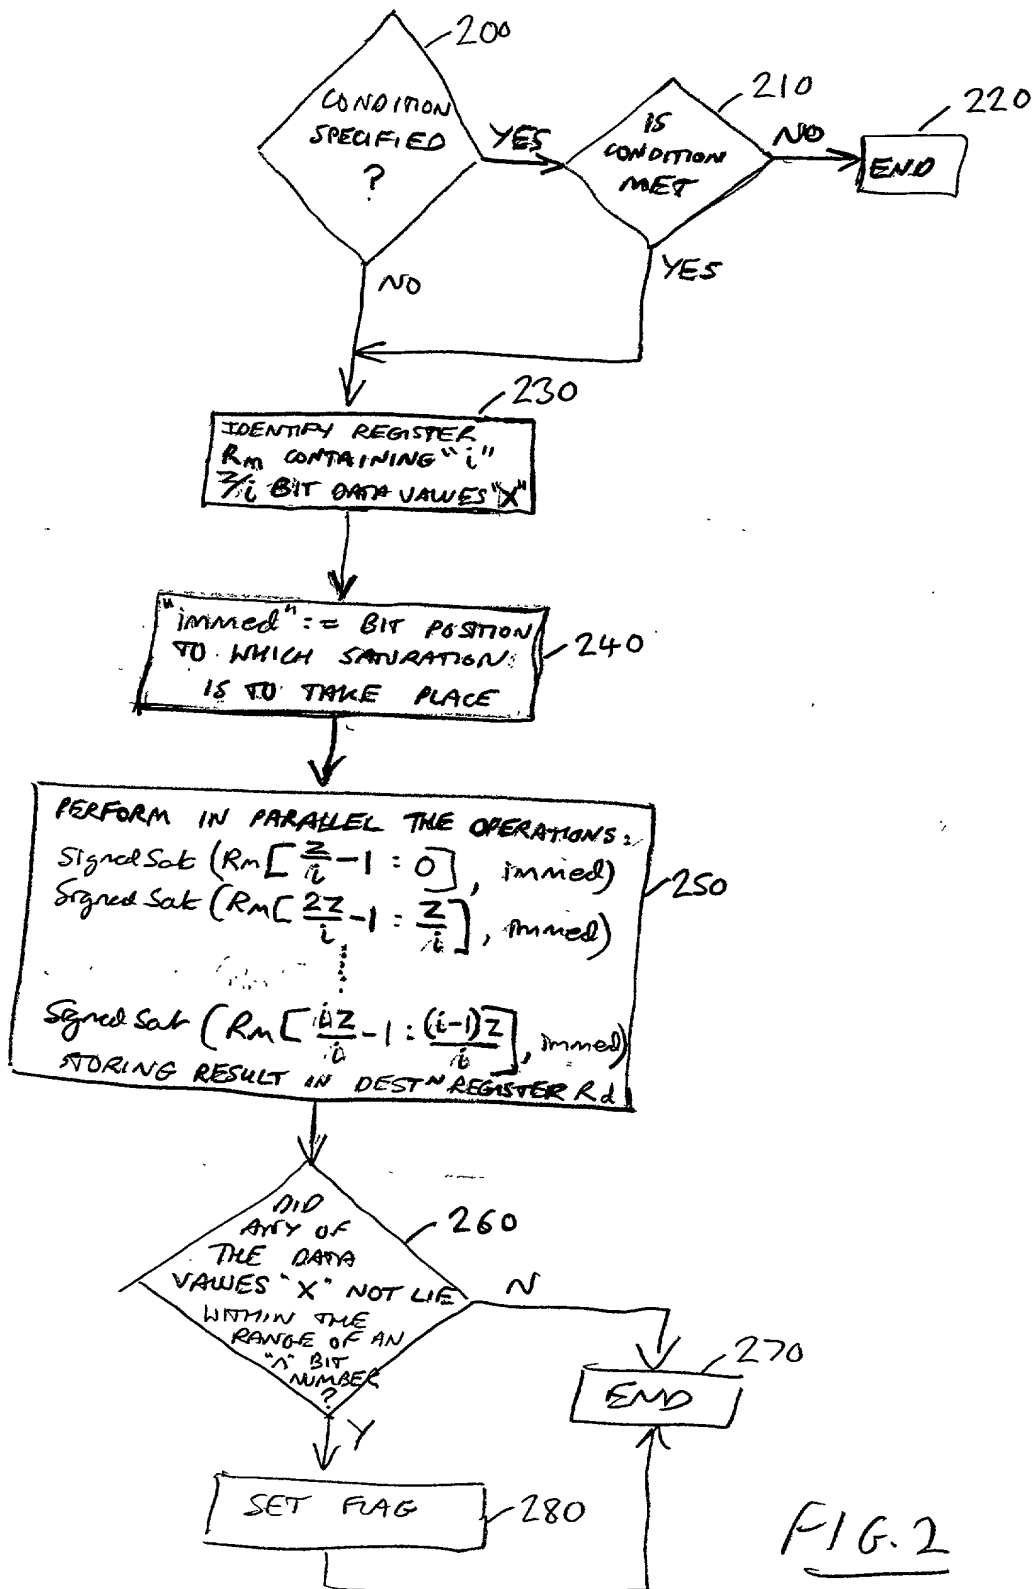 200
CONDITION
SPECIFIED
?
YES
NO
210
IS
CONDITION
MET
NO
YES
220
END
230
IDENTIFY REGISTER
Rm CONTAINING "i"
Z/i BIT DATA VALUES "X"
"immed" := BIT POSITION
TO WHICH SATURATION
IS TO TAKE PLACE
240
PERFORM IN PARALLEL THE OPERATIONS:
Signed Sat (Rm[Z/i-1:0], immed)
Signed Sat (Rm[2Z/i-1:Z/i], immed)
Signed Sat (Rm[iZ/i-1:(i-1)Z/i], immed)
STORING RESULT IN DESTN REGISTER Rd
250
DID
ANY OF
THE DATA
VALUES "X" NOT LIE
WITHIN THE
RANGE OF AN
"n" BIT
NUMBER
?
260
N
Y
270
END
SET FLAG
280
FIG.2